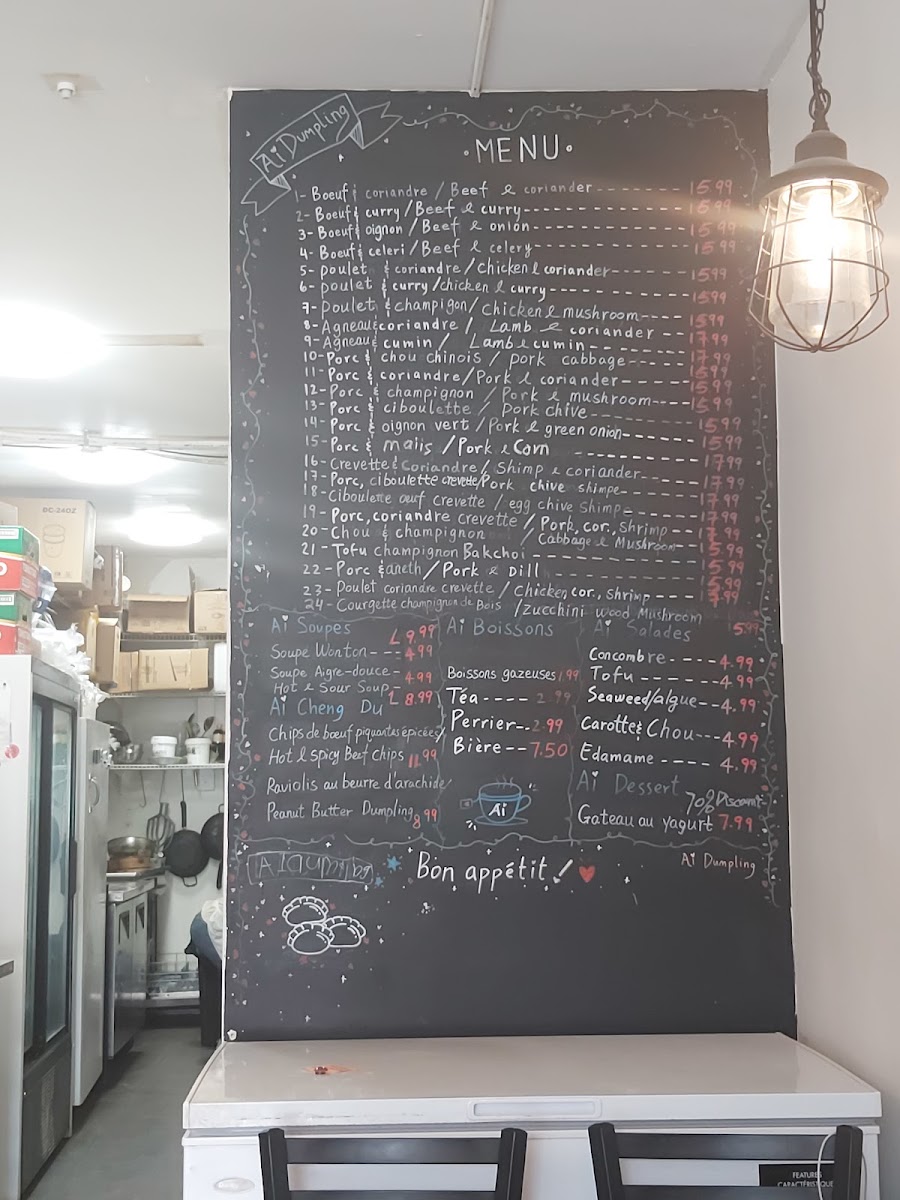 Ai Dumpling
MENU
1- Boeuf & coriandre / Beef & coriander 15.99
2- Boeuf & curry / Beef & curry 15.99
3- Boeuf & oignon / Beef & onion 15.99
4- Boeuf & celeri / Beef & celery 15.99
5- poulet & coriandre / chicken & coriander 15.99
6- poulet & curry / chicken & curry 15.99
7- poulet & champigon / chicken & mushroom 15.99
8- Agneau & coriandre / Lamb & coriander 17.99
9- Agneau & cumin / Lamb & cumin 17.99
10- Porc & chou chinois / pork cabbage 15.99
11- Porc & coriandre / Pork & coriander 15.99
12- Porc & champignon / Pork & mushroom 15.99
13- Porc & ciboulette / pork chive
14- Porc & oignon vert / Pork & green onion 15.99
15- Porc & maiis / Pork & Corn
16- Crevette & coriandre / Shimp & coriander 17.99
17- Porc, ciboulette crevette / Pork chive shimpe 17.99
18- Ciboulette œuf crevette / egg chive shimp 17.99
19- Porc, coriandre crevette / Pork, cor., Shrimp 17.99
20- Chou & champignon / Cabbage & Mushroom
21- Tofu champignon Bakchoi 15.99
22- Porc & aneth / Pork & Dill 15.99
23- Poulet coriandre crevette / Chicken, cor., shrimp
24- Courgette champignon de Bois / zucchini wood Mushroom
Ai Soupes
L 9.99
Soupe Wonton --- 4.99
Soupe Aigre-douce - 4.99
Hot & Sour Soup L 8.99
Ai Cheng Du
Chips de bœuf piquantes épicées/
Hot & Spicy Beef Chips 11.99
Raviolis au beurre d'arachide/
Peanut Butter Dumpling 8.99
Ai Boissons
Boissons gazeuses 1.99
Téa ---- 2.99
Perrier-- 2.99
Bière -- 7.50
Ai
Ai Salades 5.99
Concombre ---- 4.99
Tofu ------ 4.99
Seaweed/algue --- 4.99
Carotte & Chou --- 4.99
Edamame ---- 4.99
Ai Dessert
70% Discount
Gateau au yagurt 7.99
Ai Dumpling
Bon appétit!
Ai Dumpling
DC-24OZ
FEATURES
CARACTÉRISTIQUE